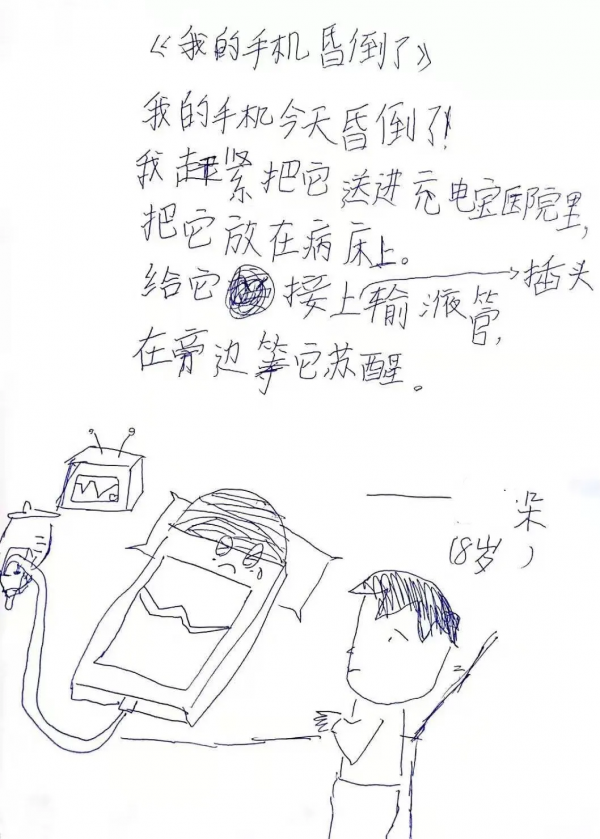 《我的手机昏倒了》
我的手机今天昏倒了!
我赶紧把它送进充电宝医院里,
把它放在病床上。
给它接上输液管, → 插头
在旁边等它苏醒。
—— 朵
(8岁)